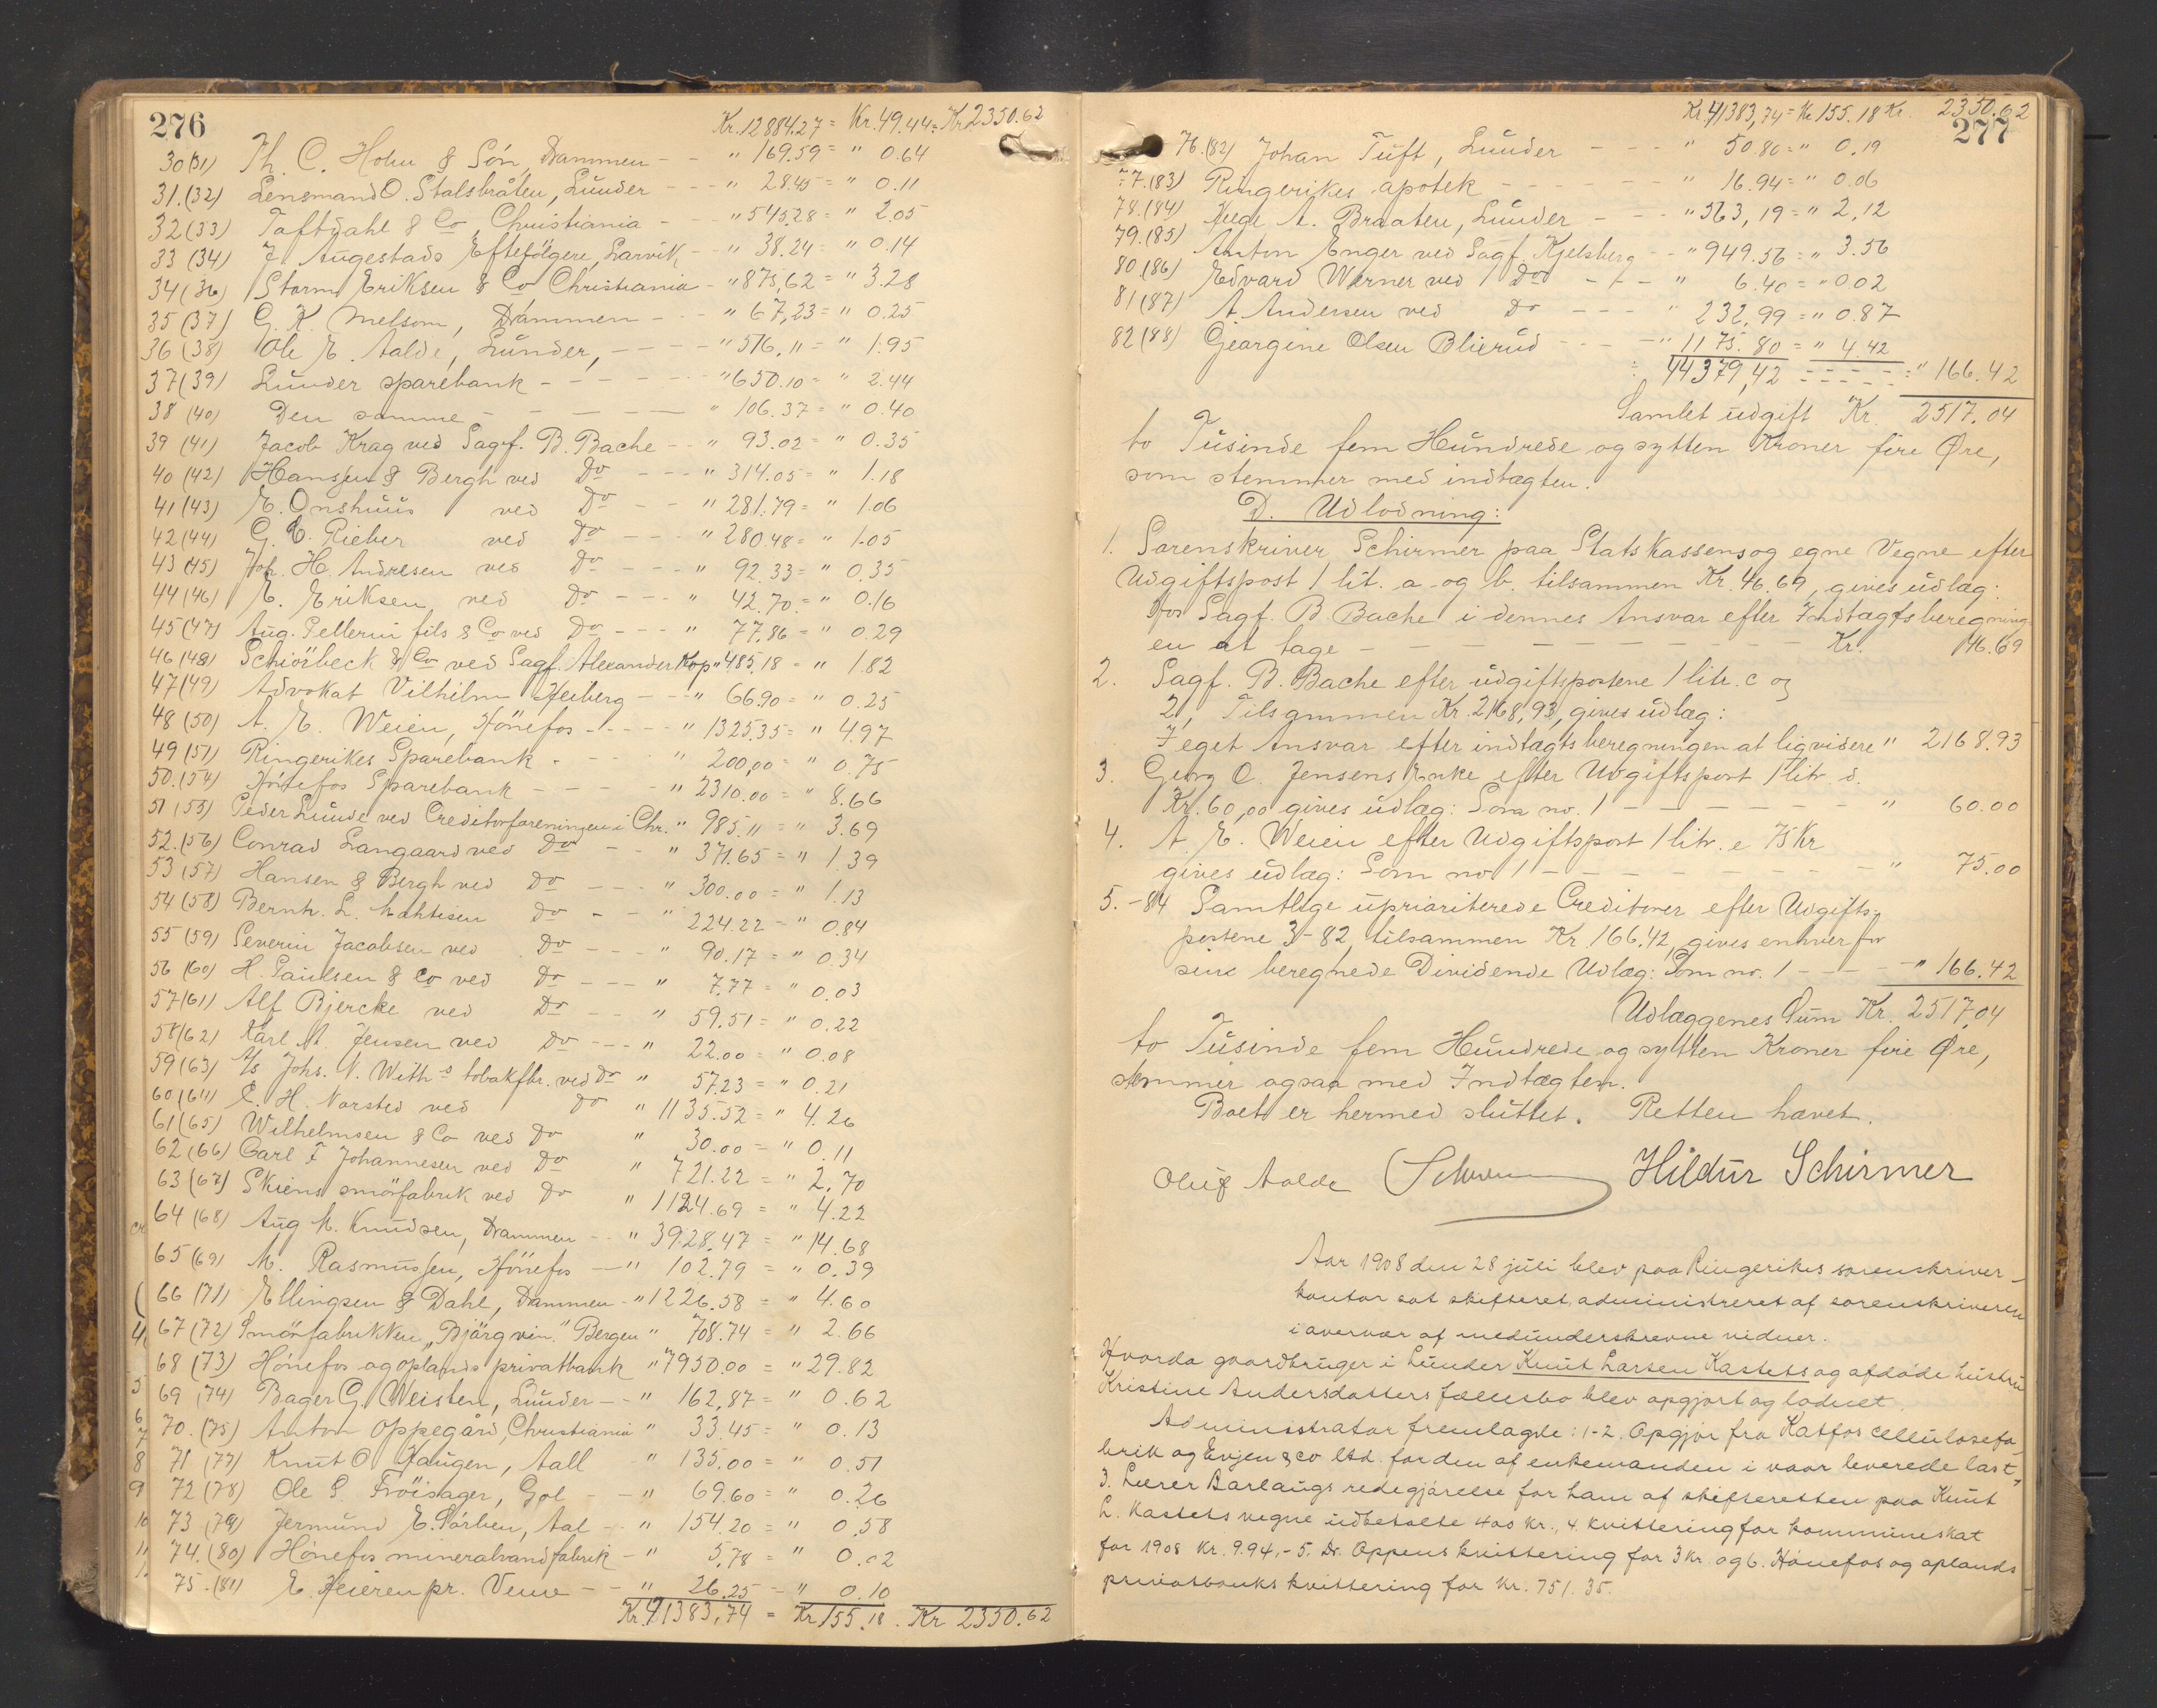 276
Kr. 12884.27 = Kr. 49.44 = Kr 2350.62
30(31) Th. C. Holm & Sön, Drammen - - " 169.59 = " 0.64
31.(32) Lensmand O. Stalsbråten, Lunder - - - " 28.45 = " 0.11
32(33) Taftdahl & Co, Christiania - - " 545.28 = " 2.05
33(34) J. Augestads Eftefölgere, Larvik - " 38.24 = " 0.14
34(36) Storm Eriksen & Co Christiania - " 875,62 = " 3.28
35(37) G. K. Melsom, Drammen - - - " 67,23 = " 0.25
36(38) Ole E. Aalde, Lunder, - - - - " 516,11 = " 1.95
37(39) Lunder sparebank - - - - - - " 650.10 = " 2.44
38 (40) Den samme - - - - - " 106.37 = " 0.40
39 (41) Jacob Krag ved Sagf. B. Bache - - " 93.02 = " 0.35
40 (42) Hansen & Bergh ved Do - - - " 314.05 = " 1.18
41(43) E. Onshuus ved Do - - " 281.79 = " 1.06
42(44) G. C. Rieber ved Do - - - " 280.48 = " 1.05
43(45) Joh. H. Andresen ved Do - - - " 92.33 = " 0.35
44(46) E. Eriksen ved Do - - - " 42.70 = " 0.16
45(47) Aug. Pellerin fils & Co ved Do - - - " 77.86 = " 0.29
46(48) Schiörbeck & Co ved Sagf. Alexander Kop " 485.18 = " 1.82
47(49) Advokat Vilhilm Heiberg - - " 66.90 = " 0.25
48(50) A. E. Weien, Hönefos - - - - " 1325.35 = " 4.97
49(51) Ringerikes Sparebank - - - - " 200,00 = " 0.75
50.(54) Hönefos Sparebank - - - - - " 2310.00 = " 8.66
51(55) Peder Lunde ved Creditorforeningen i Chr. " 985.11 = " 3.69
52.(56) Conrad Langaard ved Do - - " 371.65 = " 1.39
53(57) Hansen & Bergh ved Do - - - " 300.00 = " 1.13
54(58) Bernh. L. Mahtisen Do - - " 224.22 = " 0.84
55(59) Severin Jacobsen ved Do - - " 90.17 = " 0.34
56(60) H. Paulsen & Co ved Do - - - " 7.77 = " 0.03
57(61) Alf Bjercke ved Do - - " 59.51 = " 0.22
58(62) Karl M. Jensen ved Do - - - " 22.00 = " 0.08
59(63) A/s Johs. N. With s tobakfbr. ved Do " 57.23 = " 0.21
60(64) C. H. Norsted ved Do " 1135.52 = " 4.26
61(65) Wilhelmsen & Co ved Do " 30.00 = " 0.11
62(66) Carl F Johannesen ved Do " 721.22 = " 2.70
63(67) Skiens smörfabrik ved Do " 1124.69 = " 4.22
64(68) Aug M. Knudsen, Drammen - - " 3928,47 = " 14.68
65(69) M. Rasmussen, Hönefos - " 102.79 = " 0.39
66(71) Ellingsen & Dahl, Drammen - " 1226.58 = " 4.60
67(72) Smörfabrikken "Björgvin" Bergen " 708.74 = " 2.66
68(73) Hönefos og oplands privatbank " 7950.00 = " 29.82
69 (74) Bager G. Weisten, Lunder - - " 162,87 = " 0.62
70.(75) Anton Oppegård, Christiania " 33.45 = " 0.13
71 (77) Knut O Haugen, Aall " 135.00 = " 0.51
72(78) Ole S. Tröisager, Gol - - " 69.60 = " 0.26
73 (79) Jermund E. Törben, Aal - - " 154.20 = " 0.58
74.(80) Hönefos mineralvandfabrik - " 5.78 = " 0.02
75.(81) E. Heieren pr. Venn - - " 26.25 = " 0.10
Kr. 41383,74 = Kr 155.18. Kr 2350.62
277
Kr. 41383,74 = Kr 155.18 Kr. 2350.62
76.(82) Johan Tuft, Lunder - - - " 50.80 = " 0.19
77.(83) Ringerikes apotek - - - - - " 16.94 = " 0.06
78.(84) Helge A. Braaten, Lunder - - - " 563,19 = " 2,12
79.(85) Anton Enger ved Sagf. Kjelsberg - - " 949.56 = " 3.56
80(86) Edvard Warner ved Do - - - " 6.40 = " 0.02
81(87) A. Andersen ved Do - - - " 232,99 = " 0.87
82(88) Georgine Olsen Blierud - - - " 1175.80 = " 4.42
44379,42 = - - - - - = " 166.42
Samlet udgift Kr. 2517.04
to Tusinde fem Hundrede og sytten Kroner fire Øre,
som stemmer med indtægten.
D. Udlodning:
1. Sorenskriver Schirmer paa Statskassens og egne Vegne efter
Udgiftspost 1 lit. a og b. tilsammen Kr. 46.69, gives udlæg:
Hos Sagf. B Bache i dennes Ansvar efter Indtægtsberegning-
en at tage - - - - - - - - - - Kr. 46.69
2. Sagf. B. Bache efter udgiftspostene 1 litr. c og
2, Tilsammen Kr. 2168,93, gives udlæg:
I eget Ansvar efter indtægtsberegningen at ligvidere " 2168.93
3. Georg O. Jensens Enke efter Udgiftspost 1 litr. d.
Kr. 60,00 gives udlæg: Som no. 1 - - - - - - - " 60.00
4. A. E. Weien efter Udgiftspost 1 litr. e 75 Kr
gives udlæg: Som no 1 - - - - - - - - - " 75.00
5.-84 Samtlige uprioriterede Creditorer efter Udgifts-
postene 3-82, tilsammen Kr 166.42, gives enhver for
sine beregnede Dividende Udlæg: Som no. 1 - - - - " 166.42
Udlæggenes Sum Kr. 2517,04
to Tusinde fem Hundrede og sytten Kroner fire Øre,
stemmer ogsaa med Indtægten.
Boet er hermed sluttet. Retten hævet.
Oluf Aalde Schirmer Hildur Schirmer
Aar 1908 den 28 juli blev paa Ringerikes sorenskriver-
kontor sat skifteret, administreret af sorenskriveren
i overvær af medunderskrevne vidner.
Hvorda gaardbruger i Lunder Knut Larsen Kastets og afdøde hustru
Kristine Andersdatters fællesbo blev opgjort og lodnet.
Administrator fremlagde: 1-2. Opgjør fra Katfos cellulosefa-
brik og Evjen & co ltd. for den af enkemanden i vaar leverede last,
3. Lærer Barlaugs redegjørelse for ham af skifteretten paa Knut
L. Kastets vegne udbetalte 400 kr., 4. kvittering for kommuneskat
for 1908 kr. 9.94,- 5. Dr. Oppens kvittering for 3 kr. og 6. Hönefos og oplands
privatbanks kvittering for kr. 751.35.